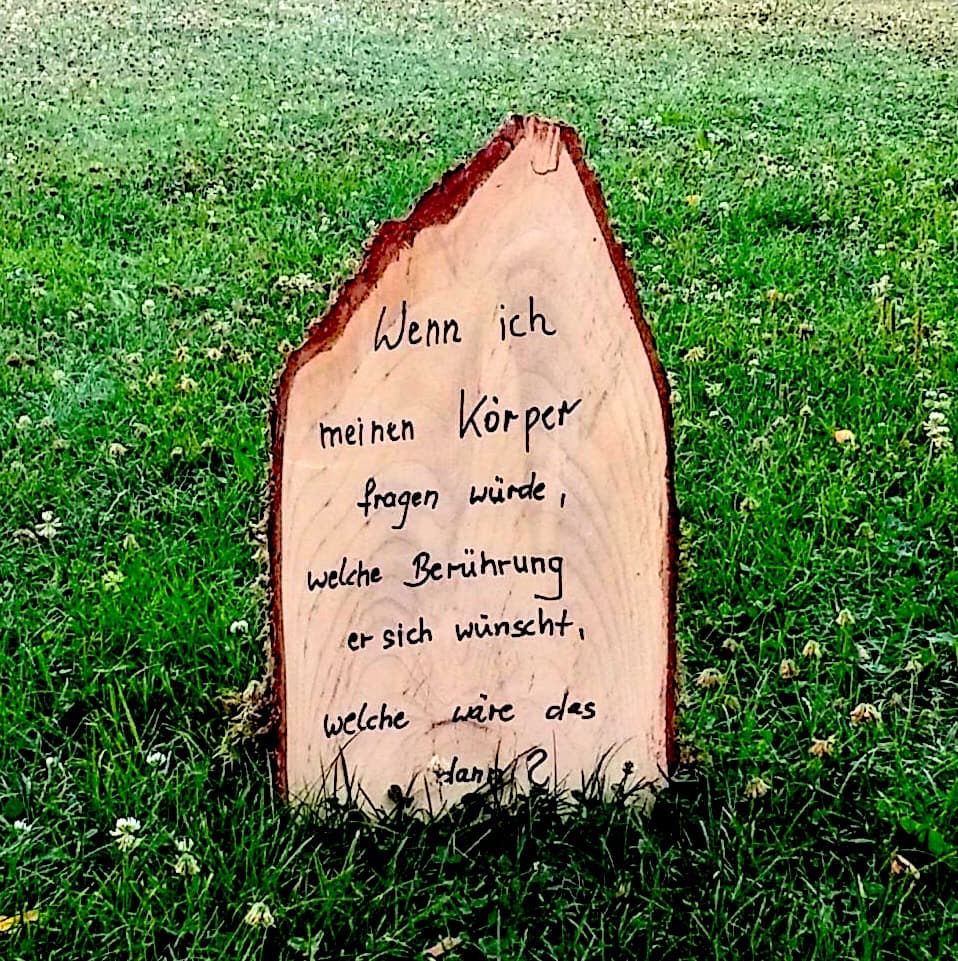 Wenn ich
meinen Körper
fragen würde,
welche Berührung
er sich wünscht,
welche wäre das
dann?